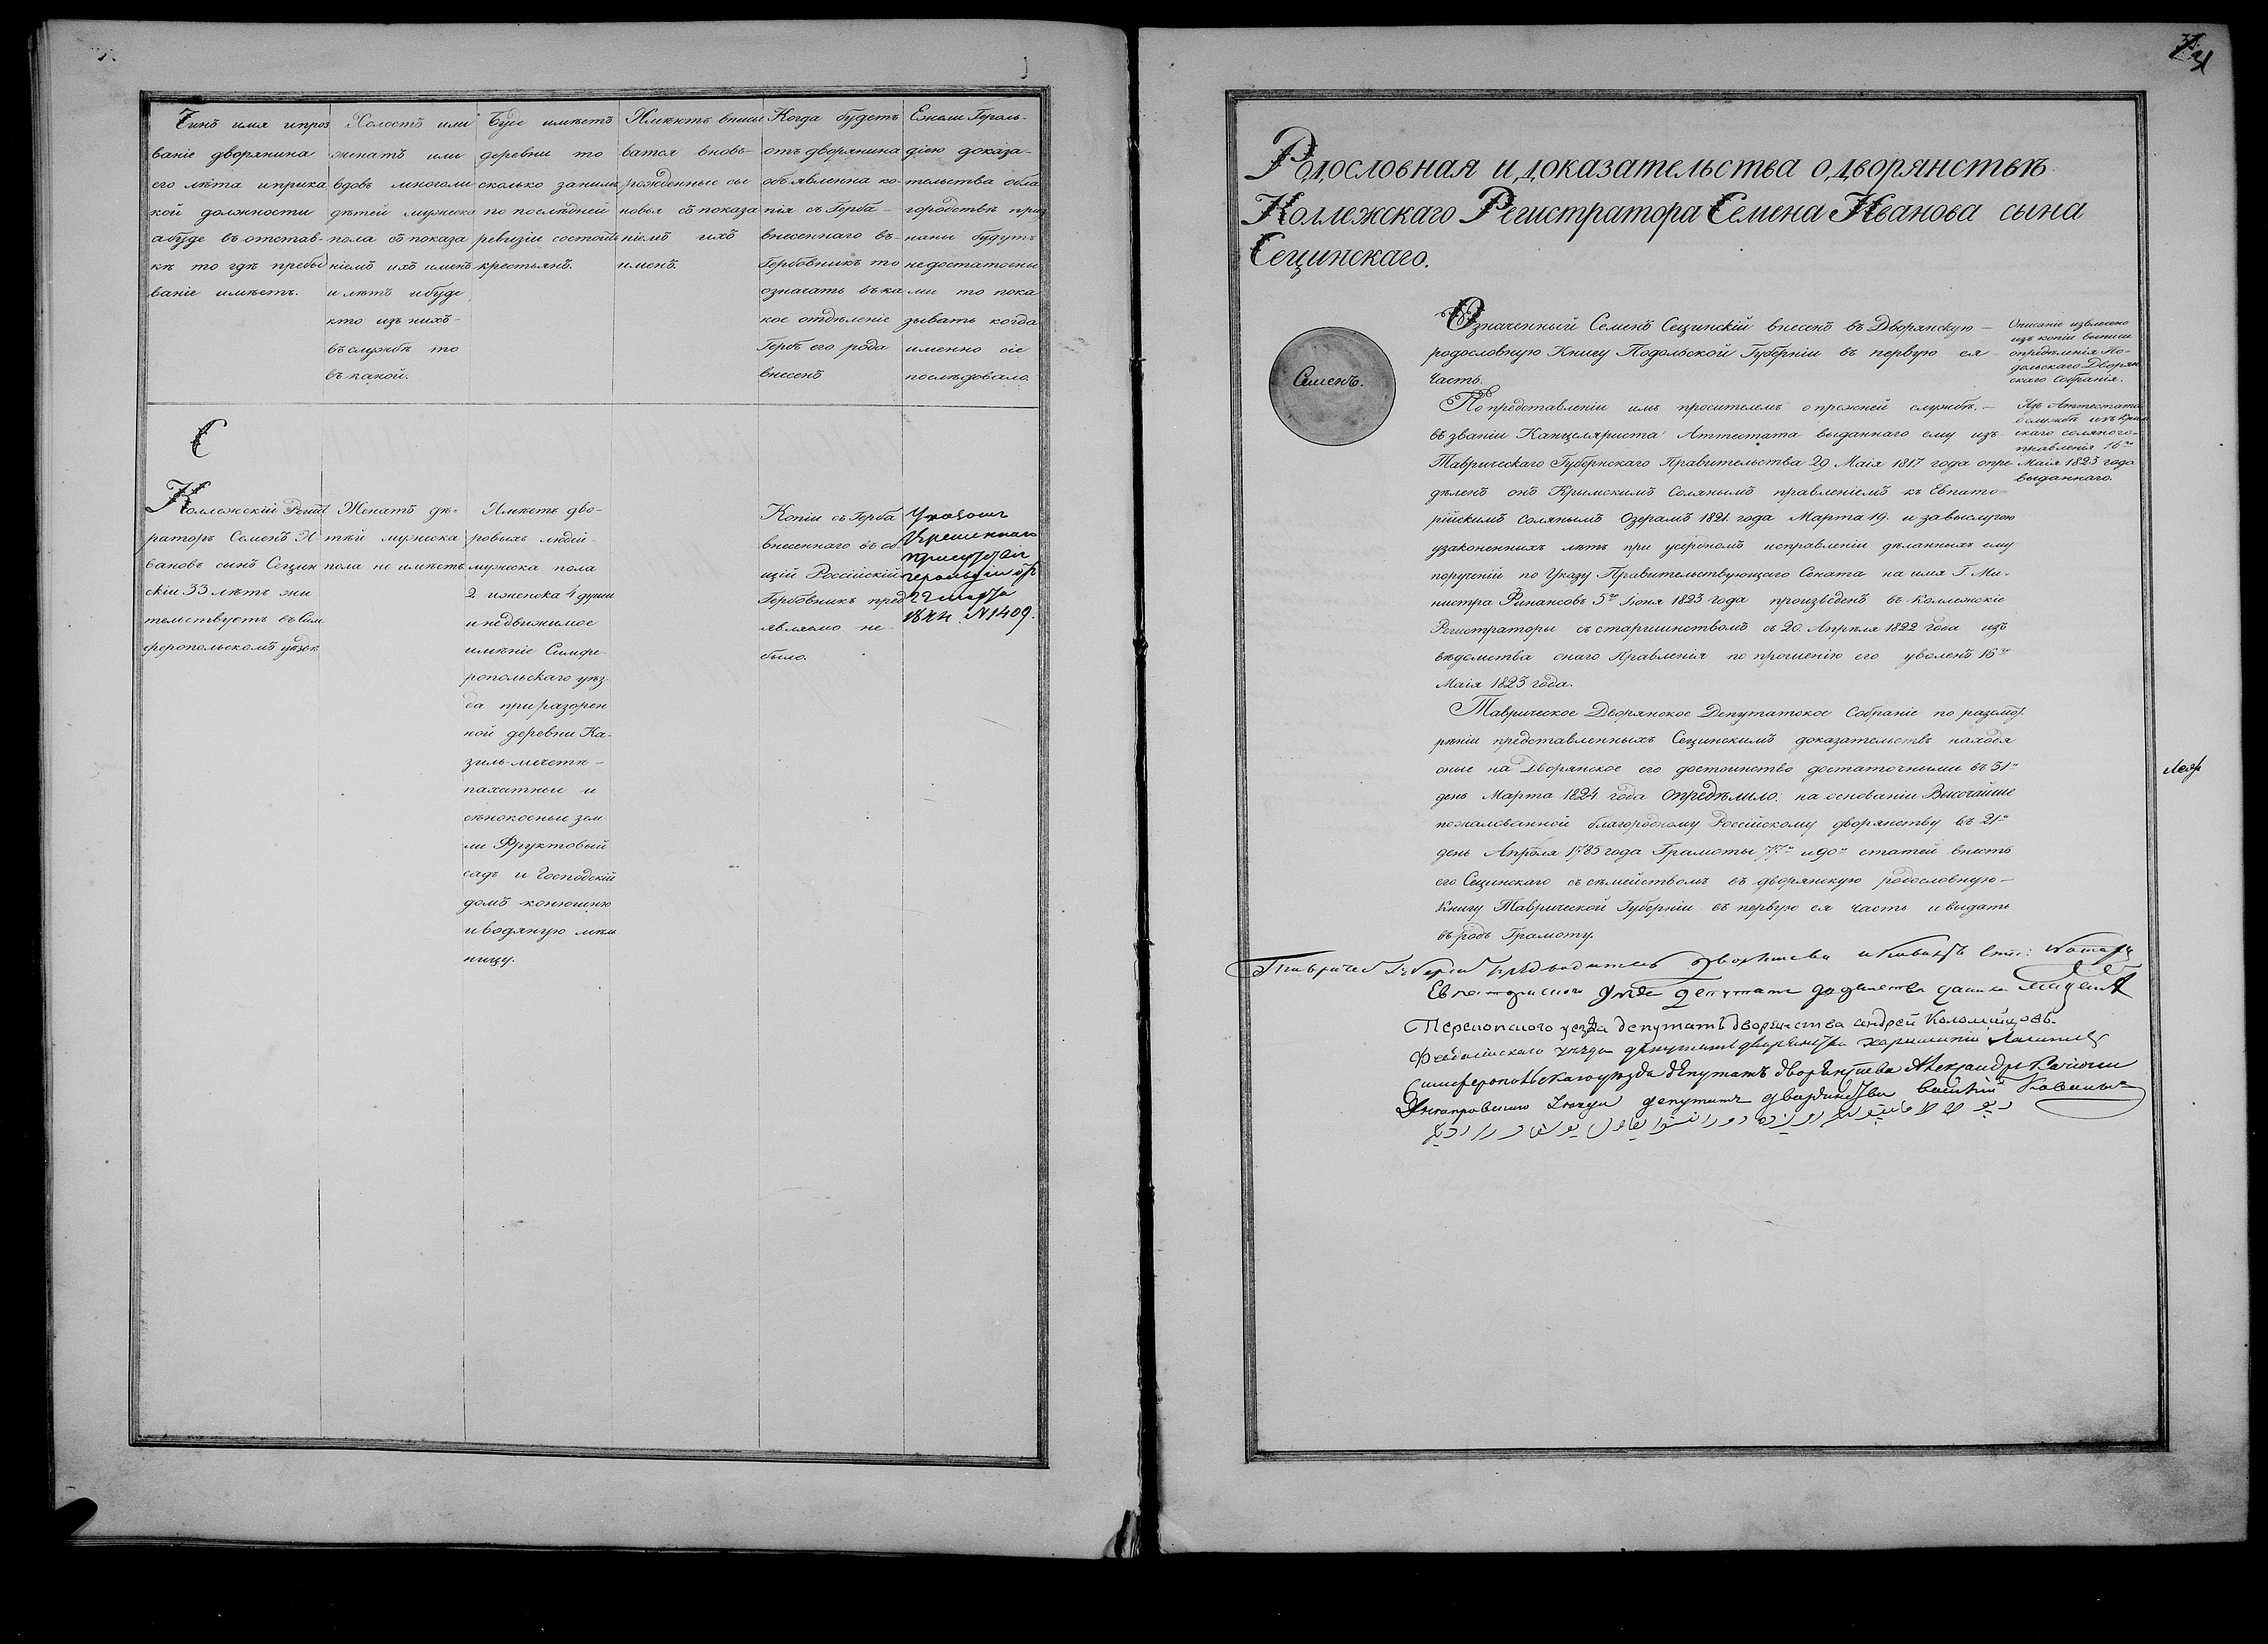 Чинъ имя ипроз
ваніе дворянина
его лѣта иприка
кой должности
абуде въ отстав-
кѣ то гдѣ пребы
ваніе имѣетъ.
Холостъ или
женатъ или
вдовъ многоли
дѣтей мужеска
пола съ показа
ніемъ ихъ именъ
и лѣтъ ибуде
кто изъ нихъ-
въ службѣ то
въ какой.
Буде имѣетъ
деревни то
сколько занимъ
по послѣдней
ревизіи состоитъ
крестьянъ.
Имѣютъ вписы
ватся вновь-
рожденные сы
новья съ показа
ніемъ ихъ
именъ.
Когда будетъ
отъ дворянина
объявленна ко-
пія съ Герба-
внесеннаго въ-
Гербовникъ то
означать въ ка
кое отдѣленіе
Гербъ его рода
внесенъ
Ежели Героль-
діею доказа-
тельства обла
городствѣ приз
наны будутъ
недостаточны
ми то пока
зывать когда
именно сіе
послѣдовало.
С
Коллежскій Регист
раторъ Семенъ И
вановъ сынъ Сецин
скій 33 лѣтъ жи
тельствуетъ въ Сим
феропольскомъ уѣздѣ
Женатъ дѣ-
тей мужеска
пола не имѣетъ
Имѣетъ дво-
ровыхъ людей
мужеска пола
2 иженска 4 души
и недвижимое
имѣніе Симфе-
ропольскаго уѣз-
да при разорен
ной деревни Ка-
зиль-мечетѣ-
пахатные и
сѣнокосные зем
ли Фруктовый
садъ и Господскій
домъ конюшню
и водяную мѣль
ницу.
Копіи съ Герба
внесеннаго въ об-
щій Россійскій
Гербовникъ пред
являемо не-
было.
Указомъ
Временнаго
присутствія
герольдіи отъ
22 марта
1844. N 1409.
Родословная и доказательства о дворянствѣ
Коллежскаго Регистратора Семена Иванова сына
Сецинскаго.
Семенъ.
Означенный Семенъ Сецинскій внесенъ въ Дворянскую-
родословную Книгу Подольской Губерніи въ первую ея-
Часть.
Описаніе извлечено
изъ копіи выписи
опредѣленія По-
дольскаго Дворян
скаго Собранія.
По представленіи имъ просителемъ о прежней службѣ.-
въ званіи Канцеляриста Аттестата выданнаго ему изъ
Таврическаго Губернскаго Правительства 29 Маія 1817 года опре
дѣленъ онъ Кримскимъ Солянымъ правленіемъ къ Евпато-
рійскимъ солянымъ Озерамъ 1821. года Марта 19. и завыслугою
узаконенныхъ лѣтъ при усердномъ исправленіи дѣланныхъ ему
порученій по Указу Правительствующаго Сената на имя Г. Ми-
нистра Финансовъ 5го Іюня 1823 года произведенъ въ Коллежскіе
Регистраторы съ старшинствомъ съ 20. Апрѣля 1822 года изъ
вѣдомства снаго Правленія по прошенію его уволенъ 16го
Маія 1823 года.
Изъ Аттестата
о службѣ изъ Крым
скаго солянаго-
правленія 16го
Маія 1823 года
выданнаго.
Таврическое Дворянское Депутатское Собраніе по разсмот
рѣніи представленныхъ Сецинскимъ доказательствъ находя
оные на Дворянское его достоинство достаточными въ 31й
день Марта 1824. года опредѣлило: на основаніи Высочайше
пожалованной благородному Россійскому дворянству въ 21й
день Апрѣля 1785 года Грамоты 77й и 90й статей внесть
его Сецинскаго съ сѣмействомъ въ дворянскую родословную-
Книгу Таврической Губерніи въ первую ея часть ивыдать
въ родъ Грамоту.
Евпаторійскаго уѣзда депутатъ дворянства
Перекопскаго уезда депутатъ дворянства андрей Коломийцовъ.
Феодосійскаго уѣзда депутатъ дворянства
Симферопольскаго уѣзда депутатъ дворянства Александръ
Днепровскаго уѣзда депутатъ дворянства